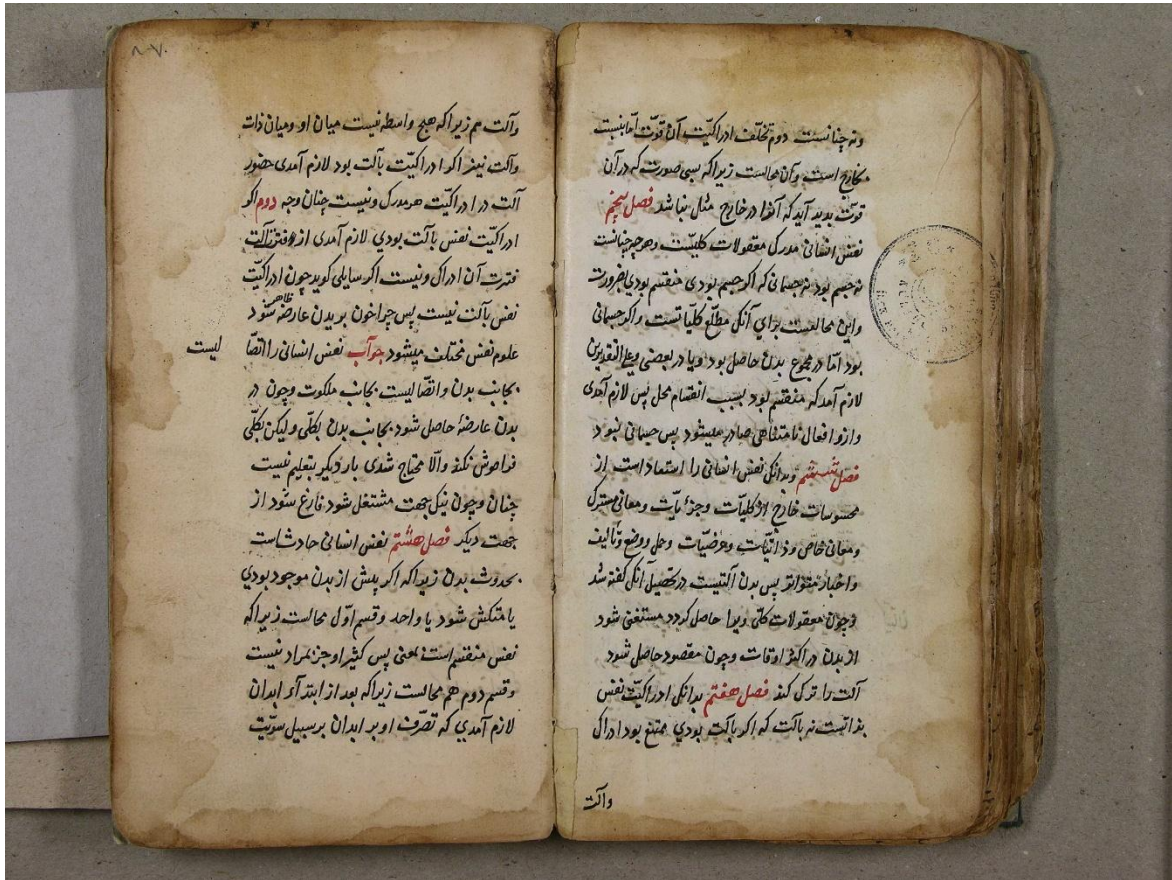 ونه چنانست دوم تخلف ادراکیّت آن قوّت امّا بنسبت
بخارج است وآن محالست زیراکه بسی صورت که در آن
قوّت بدید آید که آنرا در خارج مثل نباشد فصل پنجم
نفس انسانی مدرک معقولات کلیّست وهرچه چنانست
نه جسم بود نه جسمانی که اکر جسم بودی منقسم بودی بضرورت
واین محالست برای آنکه مطلع کلیاتست واکر جسمانی
بود امّا در مجموع بدن حاصل بود ویا در بعضی وعلی التقدیرین
لازم آمد که منقسم بود بسبب انقسام محل پس لازم آمدی
وازو افعال نامتناهی صادر میشود پس جسمانی نبود
فصل ششم وبدانکه نفس انسانی را استعداد است از
محسوسات خارج از کلیّات وجزئیات ومعانی مشترک
ومعانی خاص وذاتیّات وعرضیّات وحمل ووضع وتألیف
واخبار متواتر پس بدن آلتیست در تحصیل آنکه کفته شد
وچون معقولات کلّی ویرا حاصل کردد مستغنی شود
از بدن در اکثر اوقات وچون مقصود حاصل شود
آلت را ترک کند فصل هفتم بدانکه ادراکیّت نفس
بذاتیست نه بآلت که اکر بآلت بودی ممتنع بود ادراک
وآلت
۸۷
وآلت هم زیراکه هیچ واسطه نیست میان او ومیان ذات
وآلت نیز اکر ادراکیّت بآلت بود لازم آمدی حضور
آلت در ادراکیّت هر مدرک ونیست چنان وجه دوم اکر
ادراکیّت نفس بآلت بودی لازم آمدی از فترت آلت
فترت آن ادراک ونیست اکر سایلی کوید چون ادراکیّت
نفس بآلت نیست پس چرا خون بر بدن عارضه ظاهر شود
علوم نفس مختلف میشود جواب نفس انسانی را اتصا لیست
بجانب بدن واتصالیست بجانب ملکوت وچون در
بدن عارضهٔ حاصل شود بجانب بدن بکلّی ولیکن بکلّی
فراموش نکند والّا محتاج شدی بار دیکر بتعلیم نیست
چنان وچون بیک جهت مشتغل شود فارغ شود از
جهت دیکر فصل هشتم نفس انسانی حادث است
بحدوث بدن زیراکه اکر پیش از بدن موجود بودی
یا متکثر شود یا واحد وقسم اوّل محالست زیراکه
نفس منقسم است بمعنی پس کثیر اوجز بمراد نیست
وقسم دوم هم محالست زیراکه بعد از ابتدآء ابدان
لازم آمدی که تصرّف او بر ابدان بر سبیل سویّت